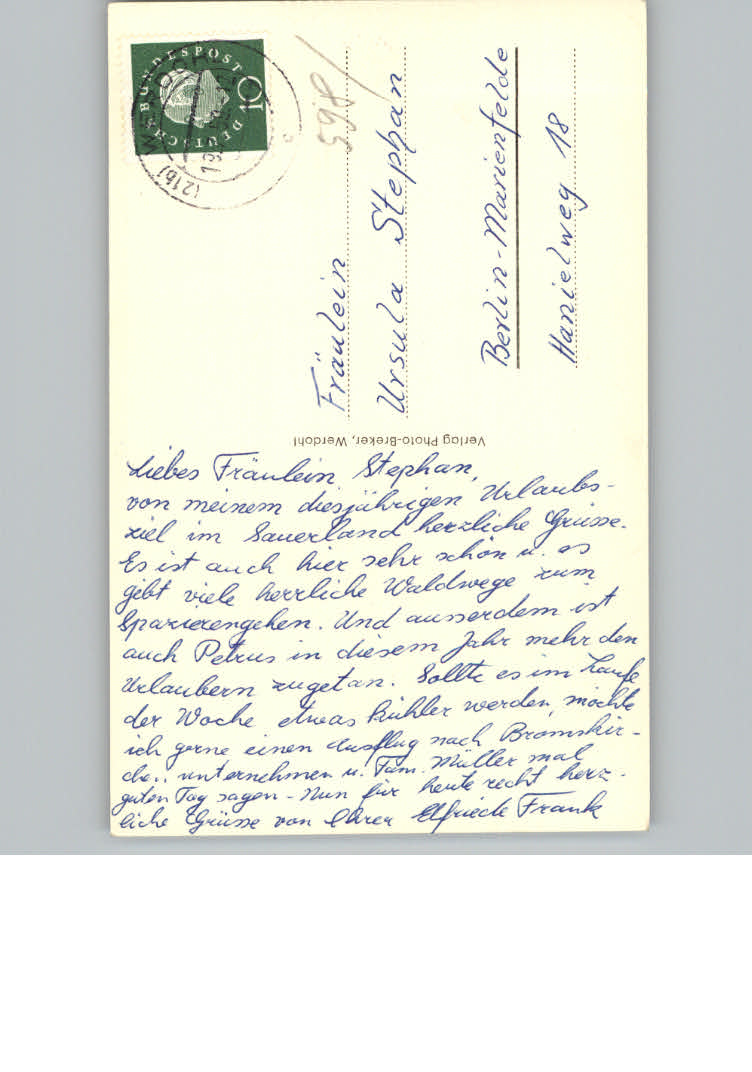 DEUTSCHE BUNDESPOST
10
(21b) WERDOHL
598
Fräulein
Ursula Stephan
Berlin-Marienfelde
Hanielweg 18
Verlag Photo-Breker, Werdohl
Liebes Fräulein Stephan,
von meinem diesjährigen Urlaubs-
ziel im Sauerland herzliche Grüsse.
Es ist auch hier sehr schön u. es
gibt viele herrliche Waldwege zum
Spazierengehen. Und ausserdem ist
auch Petrus in diesem Jahr mehr den
Urlaubern zugetan. Sollte es im Laufe
der Woche etwas kühler werden, möchte
ich gerne einen Ausflug nach Bromskir-
chen unternehmen u. Fam. Müller mal
guten Tag sagen - Nun für heute recht herz-
liche Grüsse von Ihrer Elfriede Frank